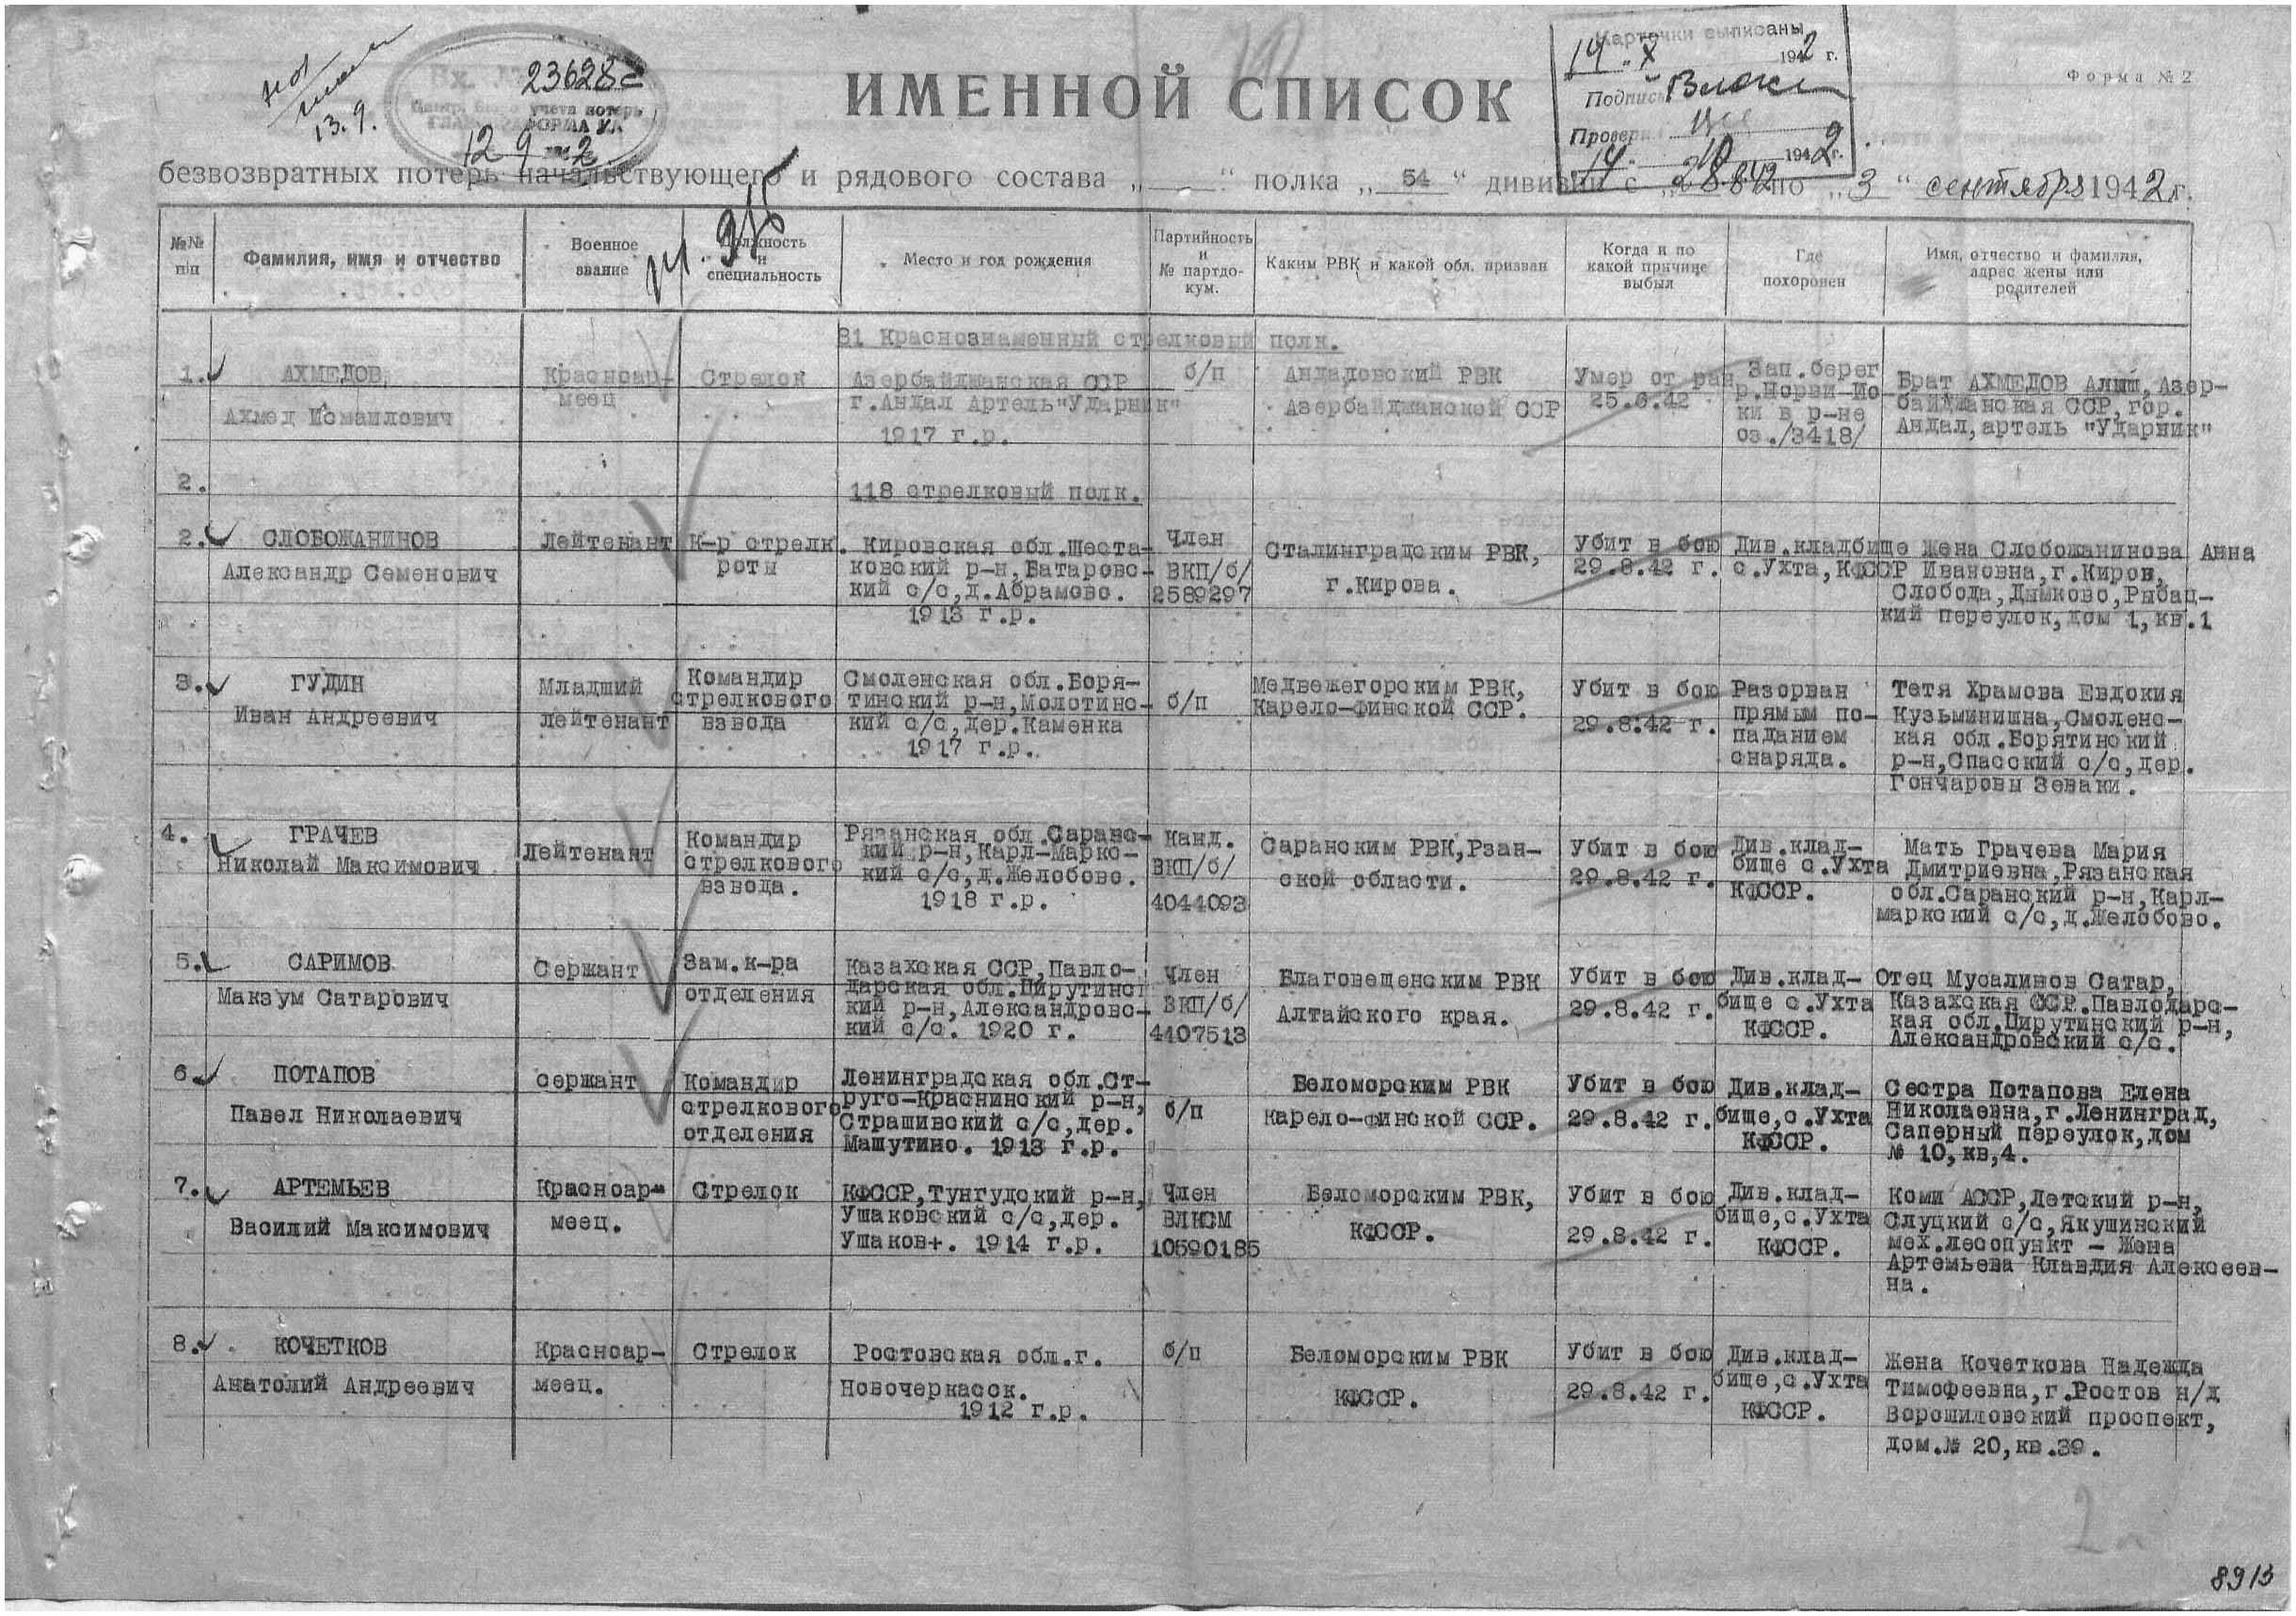 13.9.
23628с
учета потерь
12 9 2
Карточки выписаны
14 X 1942 г.
Подпись
Провер
14. 10 1942 г.
Форма № 2
ИМЕННОЙ СПИСОК
безвозвратных потерь начальствующего и рядового состава „ “ полка „ 54 “ дивизии с „ 28.8.42 по „ 3 “ сентября 1942 г.
№№ п/п
Фамилия, имя и отчество
Военное звание
Должность и специальность
Место и год рождения
Партийность и № партдокум.
Каким РВК и какой обл. призван
Когда и по какой причине выбыл
Где похоронен
Имя, отчество и фамилия, адрес жены или родителей
81 Краснознаменный стрелковый полк.
1.
АХМЕДОВ
Ахмед Исмаилович
Красноар-
меец
Стрелок
Азербайджанская ССР
г.Андал Артель"Ударник"
1917 г.р.
б/п
Андаловский РВК
Азербайджанской ССР
Умер от ран
25.6.42
Зап.берег
р.Норви-Йо-
ки в р-не
оз./3418/
Брат АХМЕДОВ Алыш, Азер-
байджанская ССР, гор.
Андал,артель "Ударник"
2.
118 стрелковый полк.
2.
СЛОБОЖАНИНОВ
Александр Семенович
Лейтенант
К-р стрелк.
роты
Кировская обл.Шеста-
ковский р-н,Батаровс-
кий с/с,д.Абрамово.
1913 г.р.
Член
ВКП/б/
2589297
Сталинградским РВК,
г.Кирова.
Убит в бою
29.8.42 г.
Див.кладбище
с.Ухта,КФССР
Жена Слобожанинова Анна
Ивановна,г.Киров,
Слобода,Дымково,Рыбац-
кий переулок,дом 1,кв.1
3.
ГУДИН
Иван Андреевич
Младший
лейтенант
Командир
стрелкового
взвода
Смоленская обл.Боря-
тинский р-н,Молотинс-
кий с/с,дер.Каменка
1917 г.р.
б/п
Медвежегорским РВК,
Карело-финской ССР.
Убит в бою
29.8.42 г.
Разорван
прямым по-
паданием
снаряда.
Тетя Храмова Евдокия
Кузьминишна,Смоленс-
кая обл.Борятинский
р-н,Спасский с/с,дер.
Гончаровы Зеваки.
4.
ГРАЧЕВ
Николай Максимович
Лейтенант
Командир
стрелкового
взвода.
Рязанская обл.Саранс-
кий р-н,Карл-Маркс-
кий с/с,д.Желобово.
1918 г.р.
Канд.
ВКП/б/
4044093
Саранским РВК,Рзан-
ской области.
Убит в бою
29.8.42 г.
Див.клад-
бище с.Ухта
КФССР.
Мать Грачева Мария
Дмитриевна,Рязанская
обл.Саранский р-н,Карл-
маркский с/с,д.Желобово.
5.
САРИМОВ
Макзум Сатарович
Сержант
Зам.к-ра
отделения
Казахская ССР,Павло-
дарская обл.Цирутинс
кий р-н,Александровс-
кий с/с. 1920 г.
Член
ВКП/б/
4407513
Благовещенским РВК
Алтайского края.
Убит в бою
29.8.42 г.
Див.клад-
бище с.Ухта
КФССР.
Отец Мусалинов Сатар,
Казахская ССР.Павлодарс-
кая обл.Цирутинский р-н,
Александровский с/с.
6.
ПОТАПОВ
Павел Николаевич
сержант
Командир
стрелкового
отделения
Ленинградская обл.Ст-
руго-Краснинский р-н,
Страшивский с/с,дер.
Машутино. 1913 г.р.
б/п
Беломорским РВК
Карело-финской ССР.
Убит в бою
29.8.42 г.
Див.клад-
бище,с.Ухта
КФССР.
Сестра Потапова Елена
Николаевна,г.Ленинград,
Саперный переулок,дом
№ 10,кв,4.
7.
АРТЕМЬЕВ
Василий Максимович
Красноар-
меец.
Стрелок
КФССР,Тунгудский р-н,
Ушаковский с/с,дер.
Ушаков+. 1914 г.р.
Член
ВЛКСМ
10590185
Беломорским РВК,
КФССР.
Убит в бою
29.8.42 г.
Див.клад-
бище,с.Ухта
КФССР.
Коми АССР,Летский р-н,
Слуцкий с/с,Якушинский
мех.лесопункт - Жена
Артемьева Клавдия Алексеев-
на.
8.
КОЧЕТКОВ
Анатолий Андреевич
Красноар-
меец.
Стрелок
Ростовская обл.г.
Новочеркасск.
1912 г.р.
б/п
Беломорским РВК
КФССР.
Убит в бою
29.8.42 г.
Див.клад-
бище,с.Ухта
КФССР.
Жена Кочеткова Надежда
Тимофеевна,г.Ростов н/д
Ворошиловский проспект,
дом.№ 20,кв.39.
8913